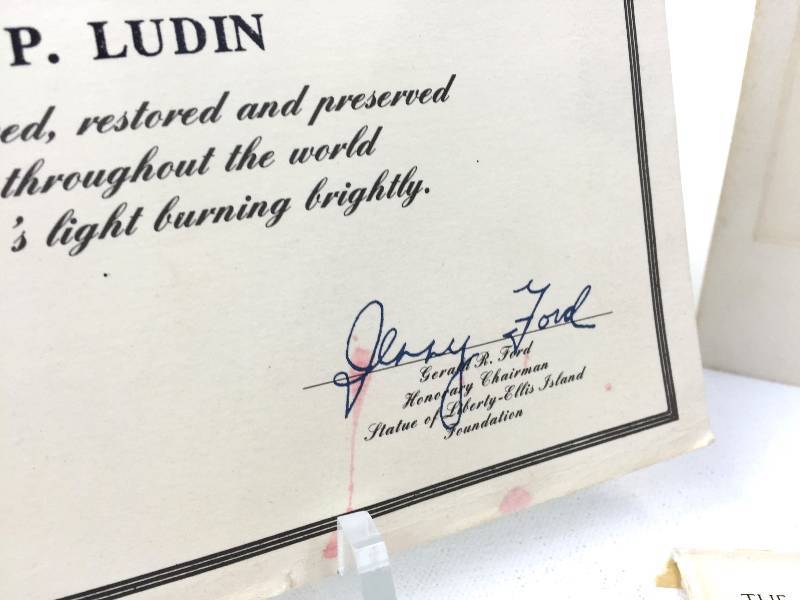 P. LUDIN
ed, restored and preserved
throughout the world
's light burning brightly.
Jerry Ford
Gerald R. Ford
Honorary Chairman
Statue of Liberty-Ellis Island
Foundation
THE